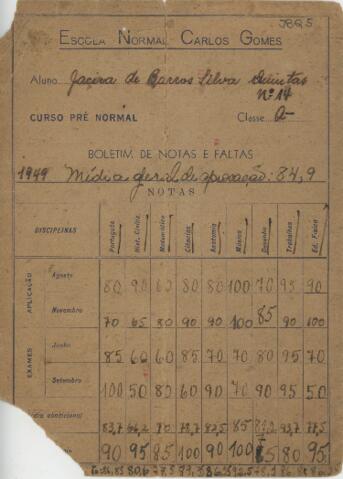 JBQ5
ESCOLA NORMAL CARLOS GOMES
Aluno Jacira de Barros Silva Quintas
Nº 14
CURSO PRÉ NORMAL Classe
BOLETIM DE NOTAS E FALTAS
1949 Média geral de aprovação: 84,9
NOTAS
DISCIPLINAS Português Hist. Civiliz. Matemática Ciências Anatomia Música Desenho Trabalhos Ed. Física
APLICAÇÃO
Agosto 80 90 60 80 80 100 70 95 90
Novembro 70 65 80 90 90 100 85 90 100
EXAMES
Junho 85 60 60 85 70 70 80 95 70
Setembro 100 50 80 60 90 70 90 95 50
condicional 83,7 66,2 70 82,5 85 93,7 77,5
90 95 85 100 90 100 85 80 95